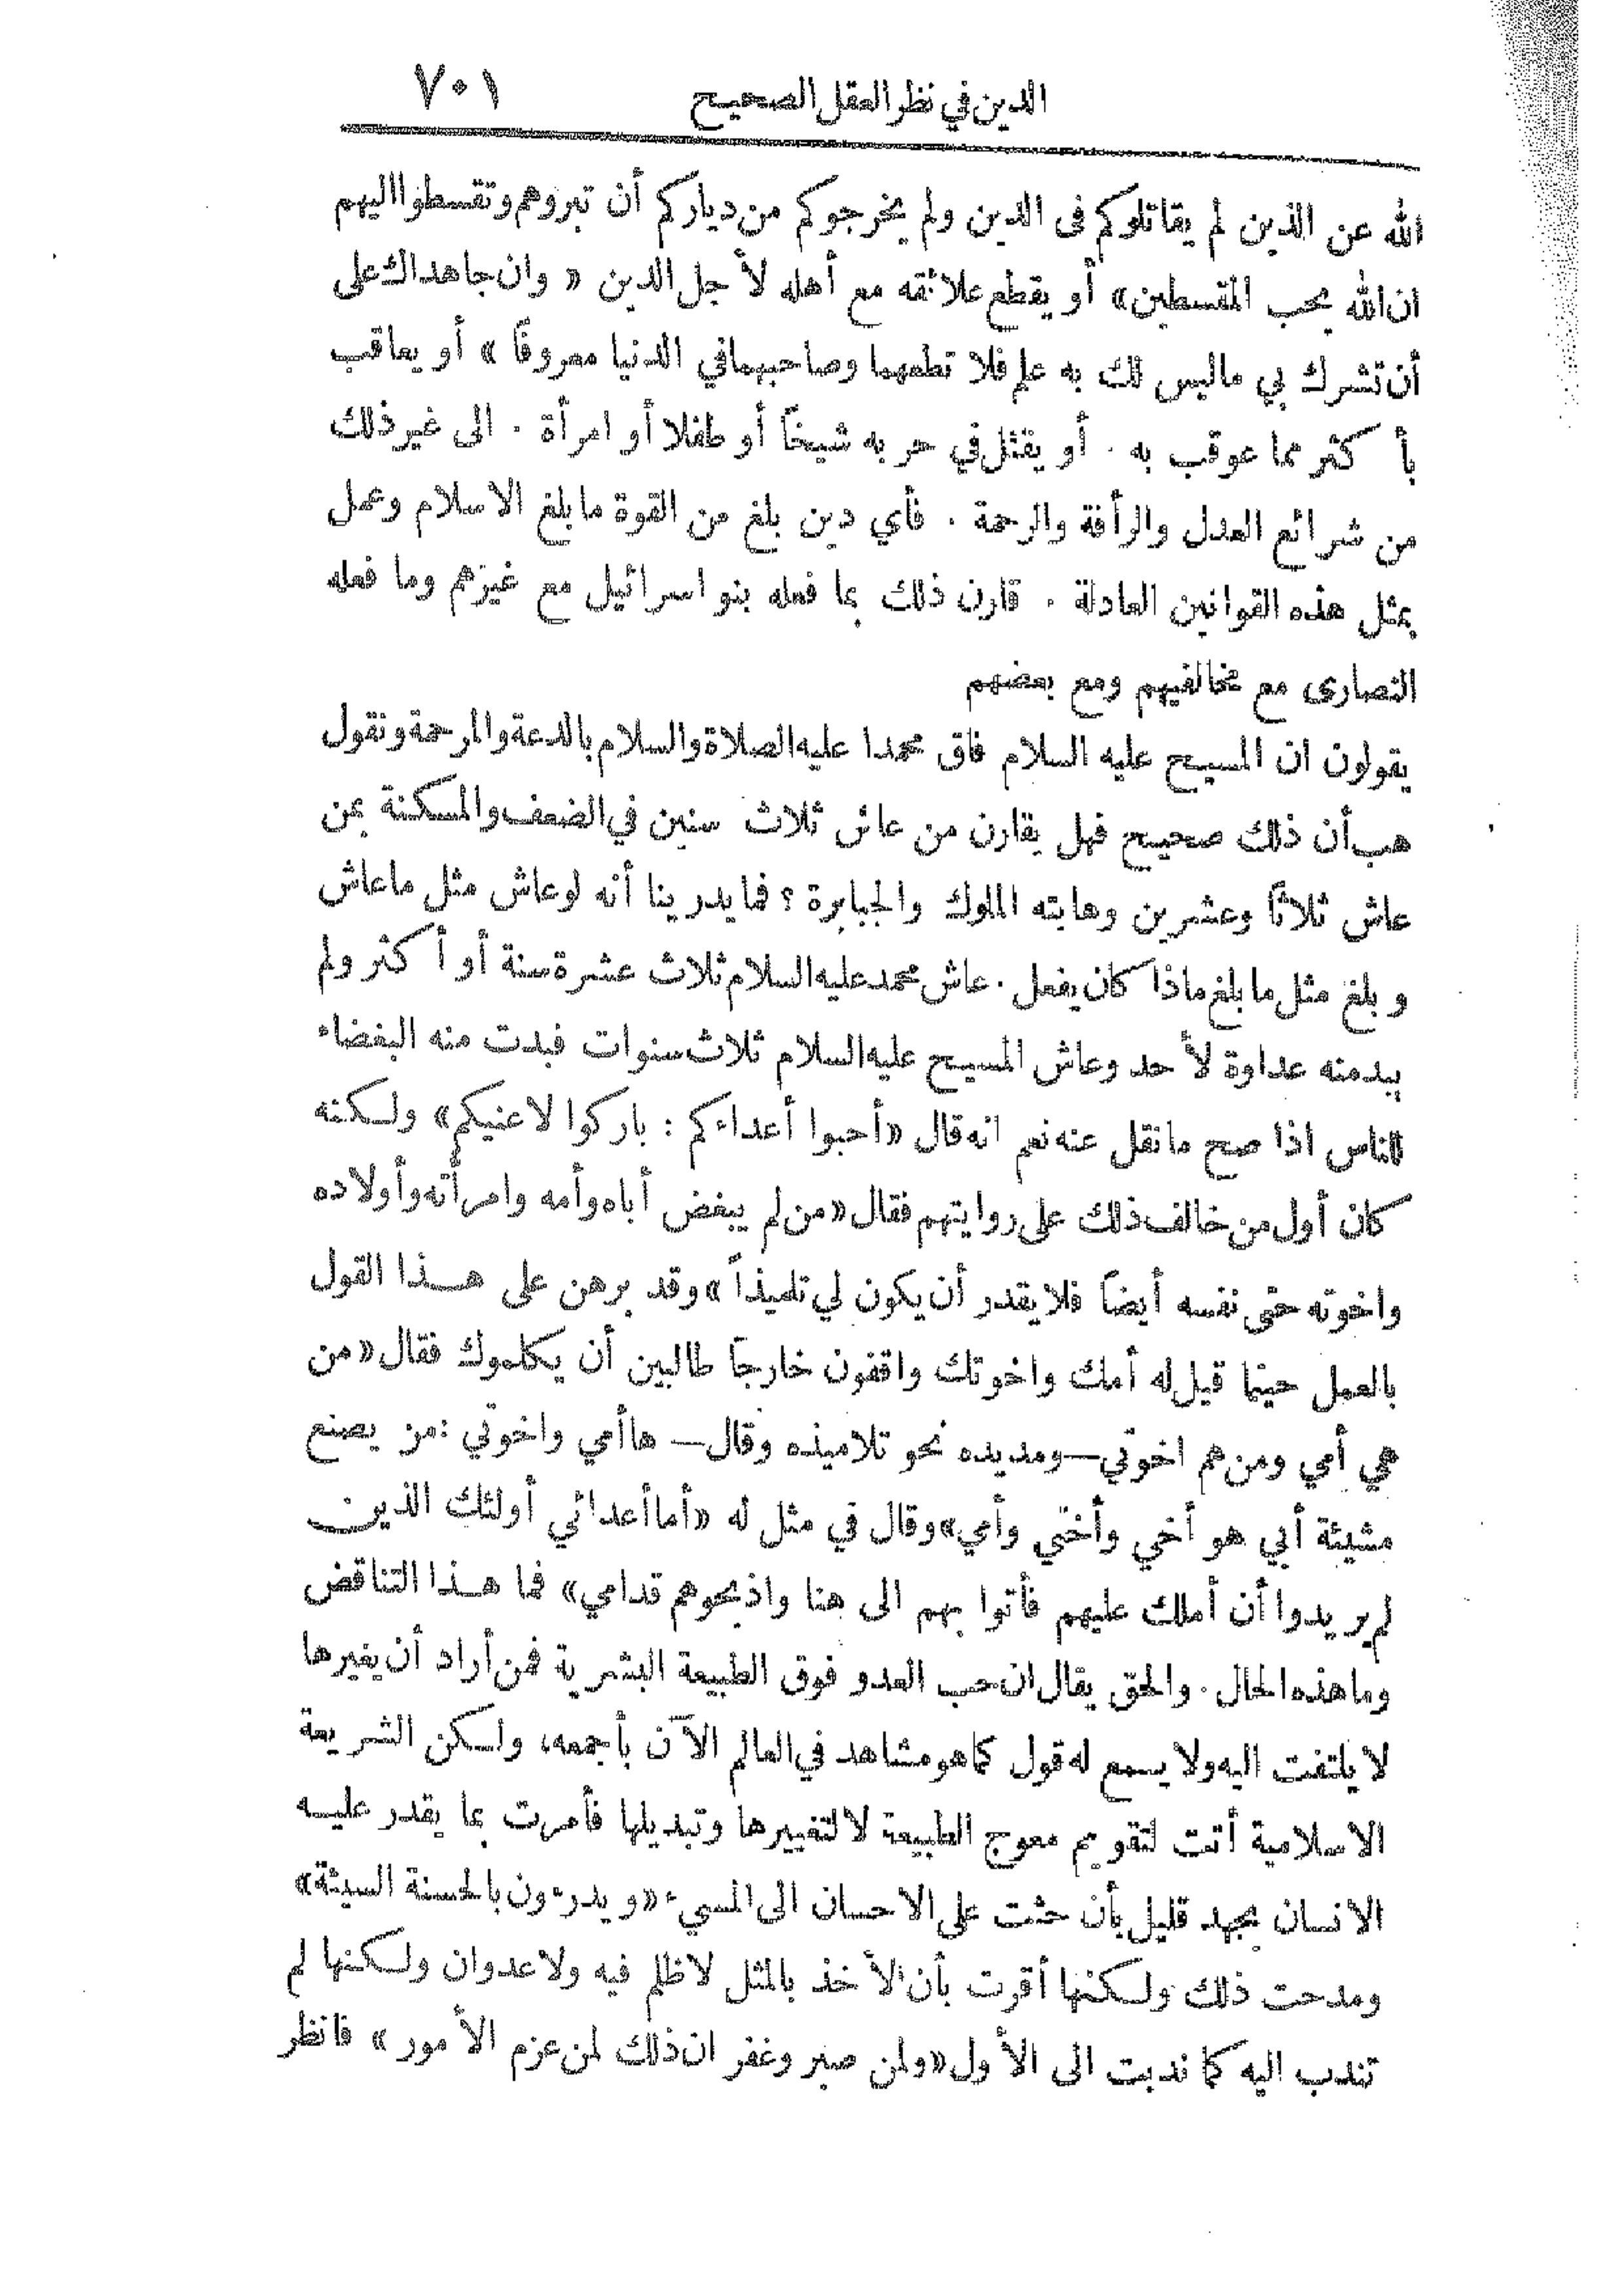 الدين في نظر العقل الصحيح ٧٠١
الله عن الذين لم يقاتلوكم فى الدين ولم يخرجوكم من دياركم أن تبروهم وتقسطوا اليهم
ان الله يحب المقسطين» أو يقطع علائقه مع أهله لأجل الدين « وان جاهداك على
أن تشرك بي ماليس لك به علم فلا تطعهما وصاحبهما في الدنيا معروفاً » أو يعاقب
بأكثر مما عوقب به . أو يقتل في حربه شيخاً أو طفلا أو امرأة . الى غير ذلك
من شرائع العدل والرأفة والرحمة . فأي دين بلغ من القوة ما بلغ الاسلام وعمل
بمثل هذه القوانين العادلة . قارن ذلك بما فعله بنو اسرائيل مع غيرهم وما فعله
النصارى مع مخالفيهم ومع بعضهم
يقولون ان المسيح عليه السلام فاق محمدا عليه الصلاة والسلام بالدعة والمرحمة ونقول
هب أن ذلك صحيح فهل يقارن من عاش ثلاث سنين في الضعف والمسكنة بمن
عاش ثلاثاً وعشرين وهابته الملوك والجبابرة ؟ فما يدرينا أنه لو عاش مثل ما عاش
و بلغ مثل ما بلغ ماذا كان يفعل . عاش محمد عليه السلام ثلاث عشرة سنة أو أكثر ولم
يبد منه عداوة لأحد وعاش المسيح عليه السلام ثلاث سنوات فبدت منه البغضاء
للناس اذا صح ما نقل عنه نعم انه قال «أحبوا أعداءكم : باركوا لاعنيكم» ولكنه
كان أول من خالف ذلك على روايتهم فقال «من لم يبغض أباه وأمه وامرأته وأولاده
واخوته حتى نفسه أيضاً فلا يقدر أن يكون لي تلميذاً » وقد برهن على هذا القول
بالعمل حينما قيل له أمك واخوتك واقفون خارجاً طالبين أن يكلموك فقال «من
هي أمي ومن هم اخوتي—ومد يده نحو تلاميذه وقال— ها أمي واخوتي : من يصنع
مشيئة أبي هو أخي وأختي وأمي» وقال في مثل له «أما أعدائي أولئك الذين
لم يريدوا أن أملك عليهم فأتوا بهم الى هنا واذبحوهم قدامي» فما هذا التناقض
وما هذه الحال . والحق يقال ان حب العدو فوق الطبيعة البشرية فمن أراد أن يغيرها
لا يلتفت اليه ولا يسمع له قول كما هو مشاهد في العالم الآن بأجمعه، ولكن الشريعة
الاسلامية أتت لتقويم معوج الطبيعة لا لتغييرها وتبديلها فأمرت بما يقدر عليه
الانسان بجهد قليل بأن حثت على الاحسان الى المسيء «ويدرءون بالحسنة السيئة»
ومدحت ذلك ولكنها أقرت بأن الأخذ بالمثل لا ظلم فيه ولا عدوان ولكنها لم
تندب اليه كما ندبت الى الأول «ولمن صبر وغفر ان ذلك لمن عزم الأمور » فانظر